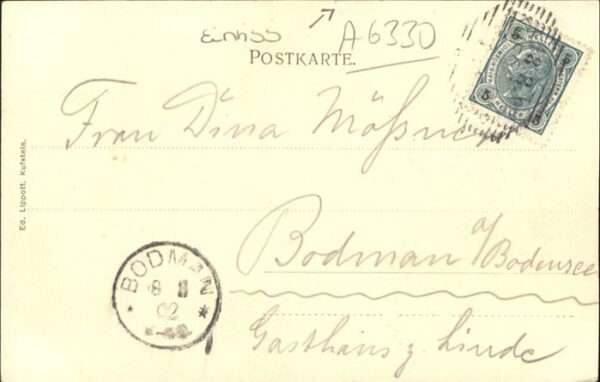 A6330
POSTKARTE.
Frau Dina Mößner
Bodman a/Bodensee
Gasthaus z Linde
Ed. Lippott, Kufstein.
BODMAN
8 II
02